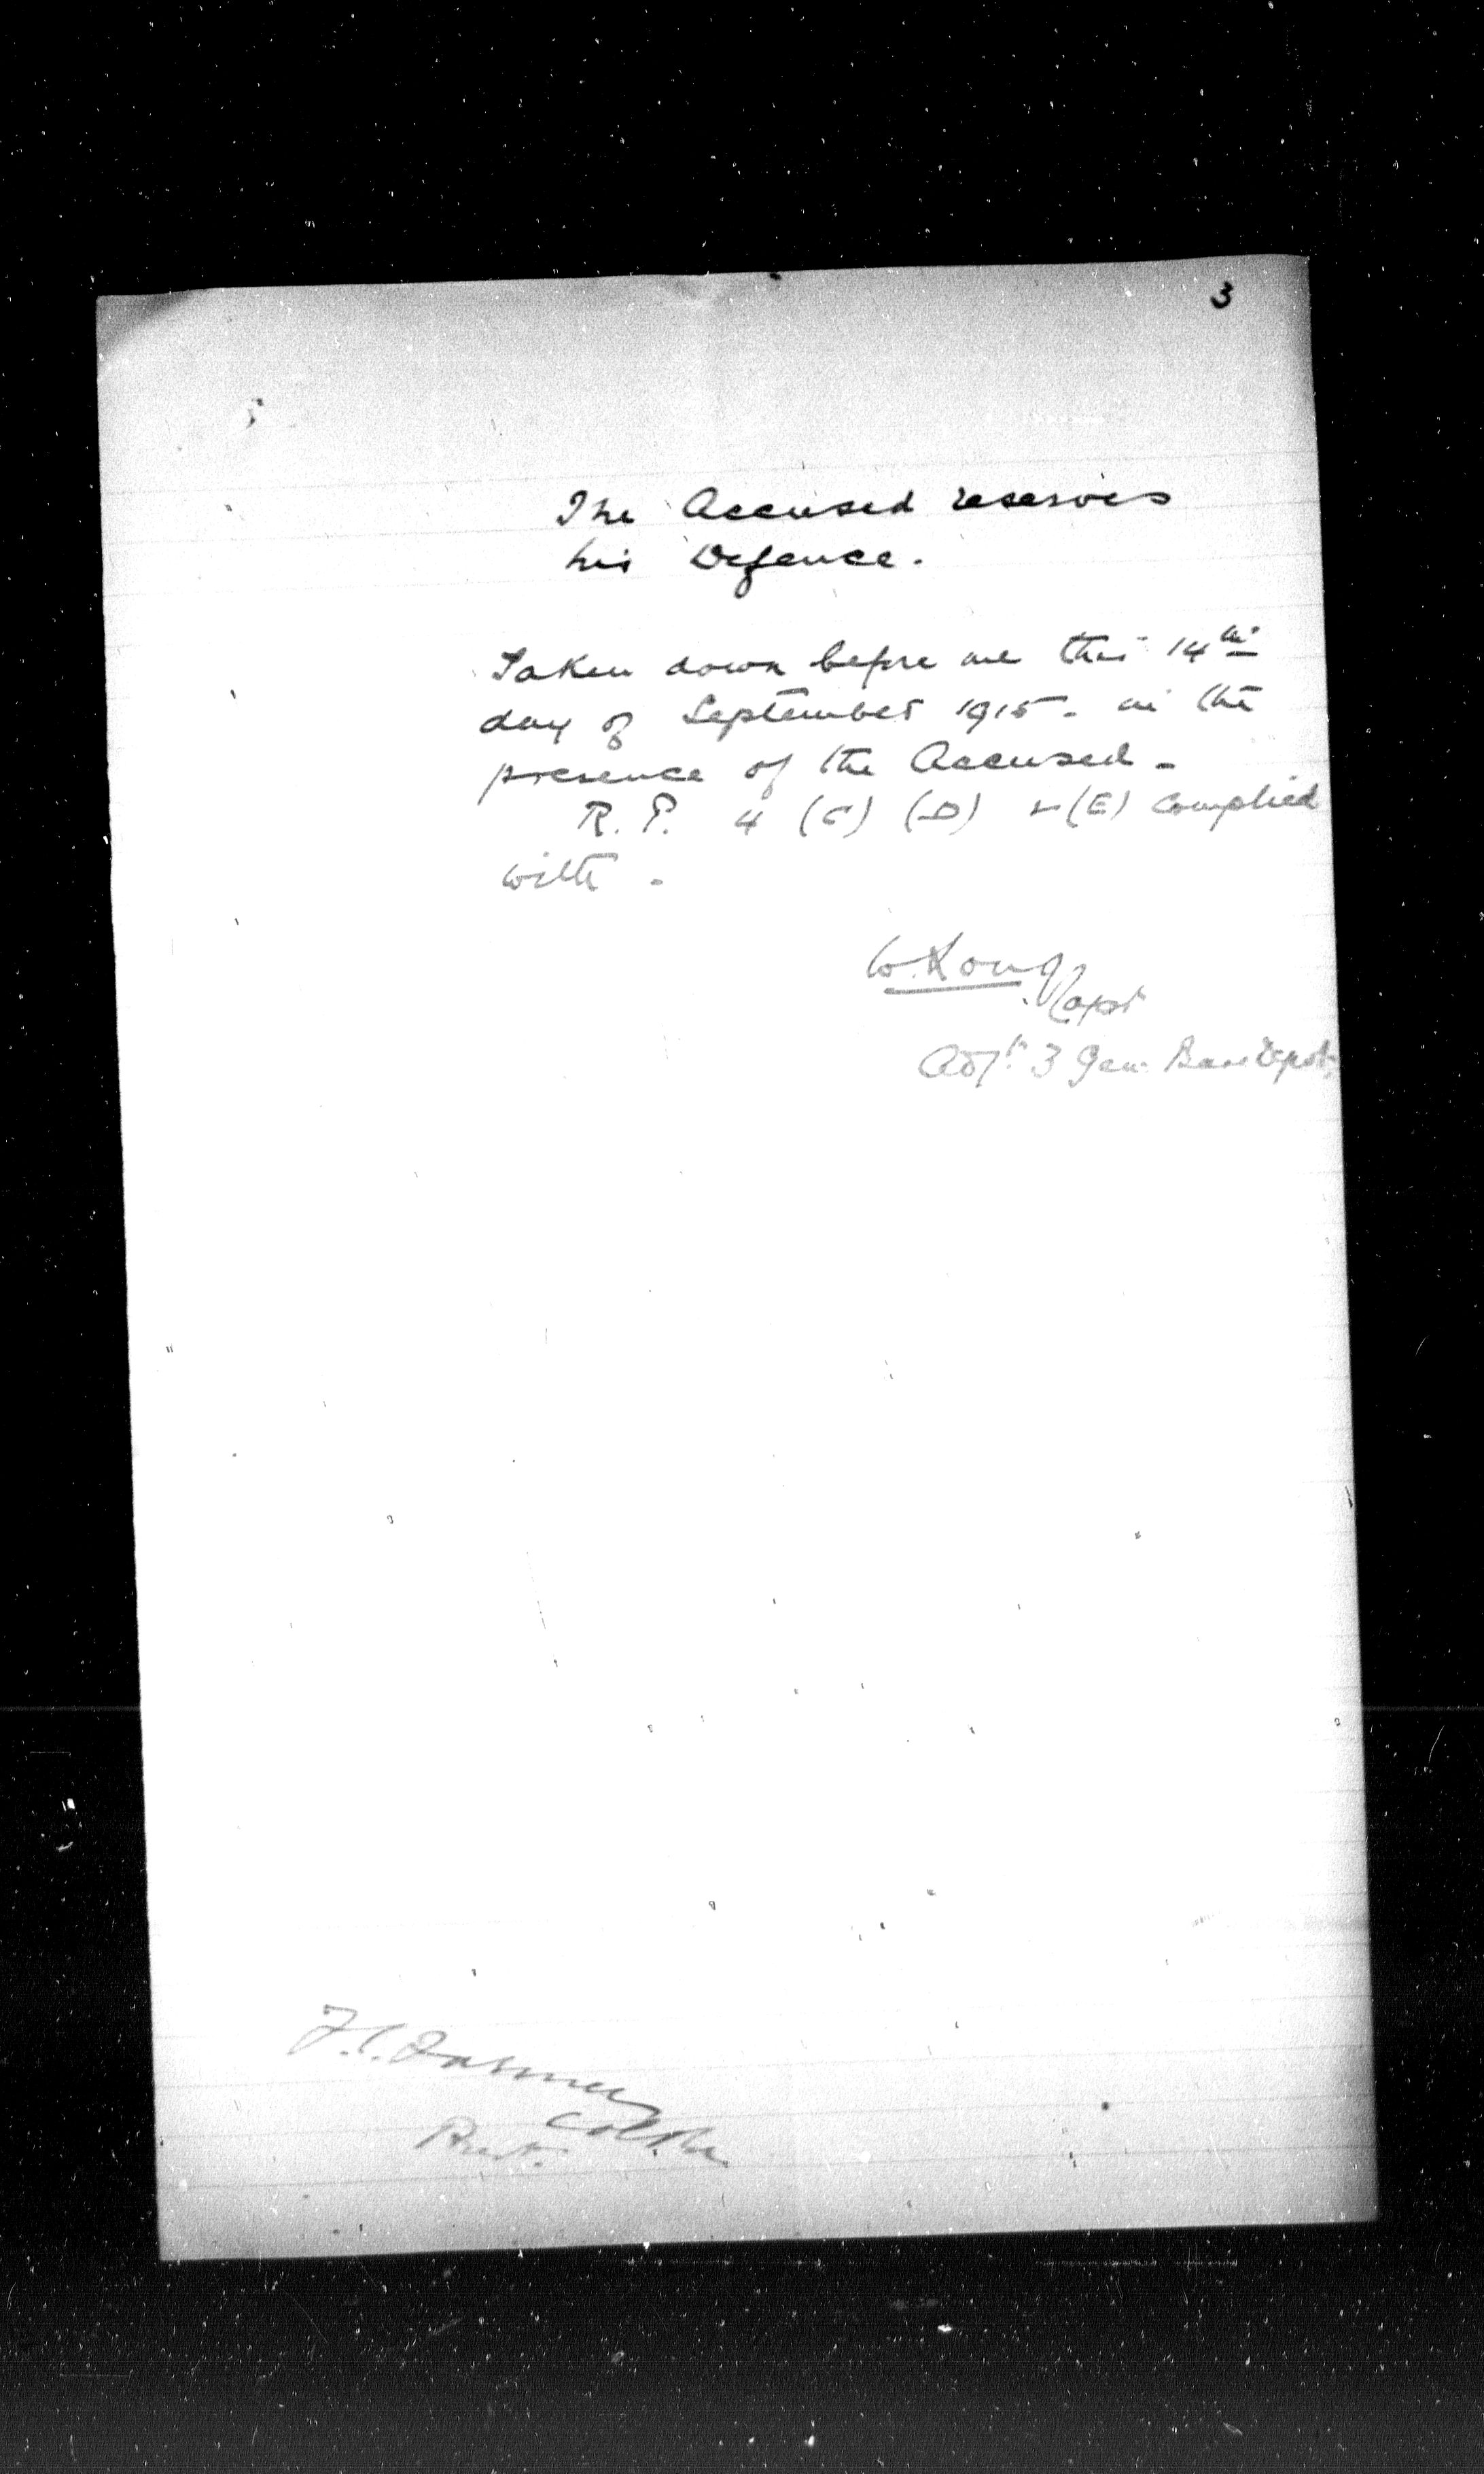 3
The Accused reserves
his Defence.
Taken down before me this 14th
day of September 1915. in the
presence of the Accused -
R. P. 4 (C) (D) & (E) Complied
with -
Capt
Adjt 3 Gen. Base Depot
Prest.